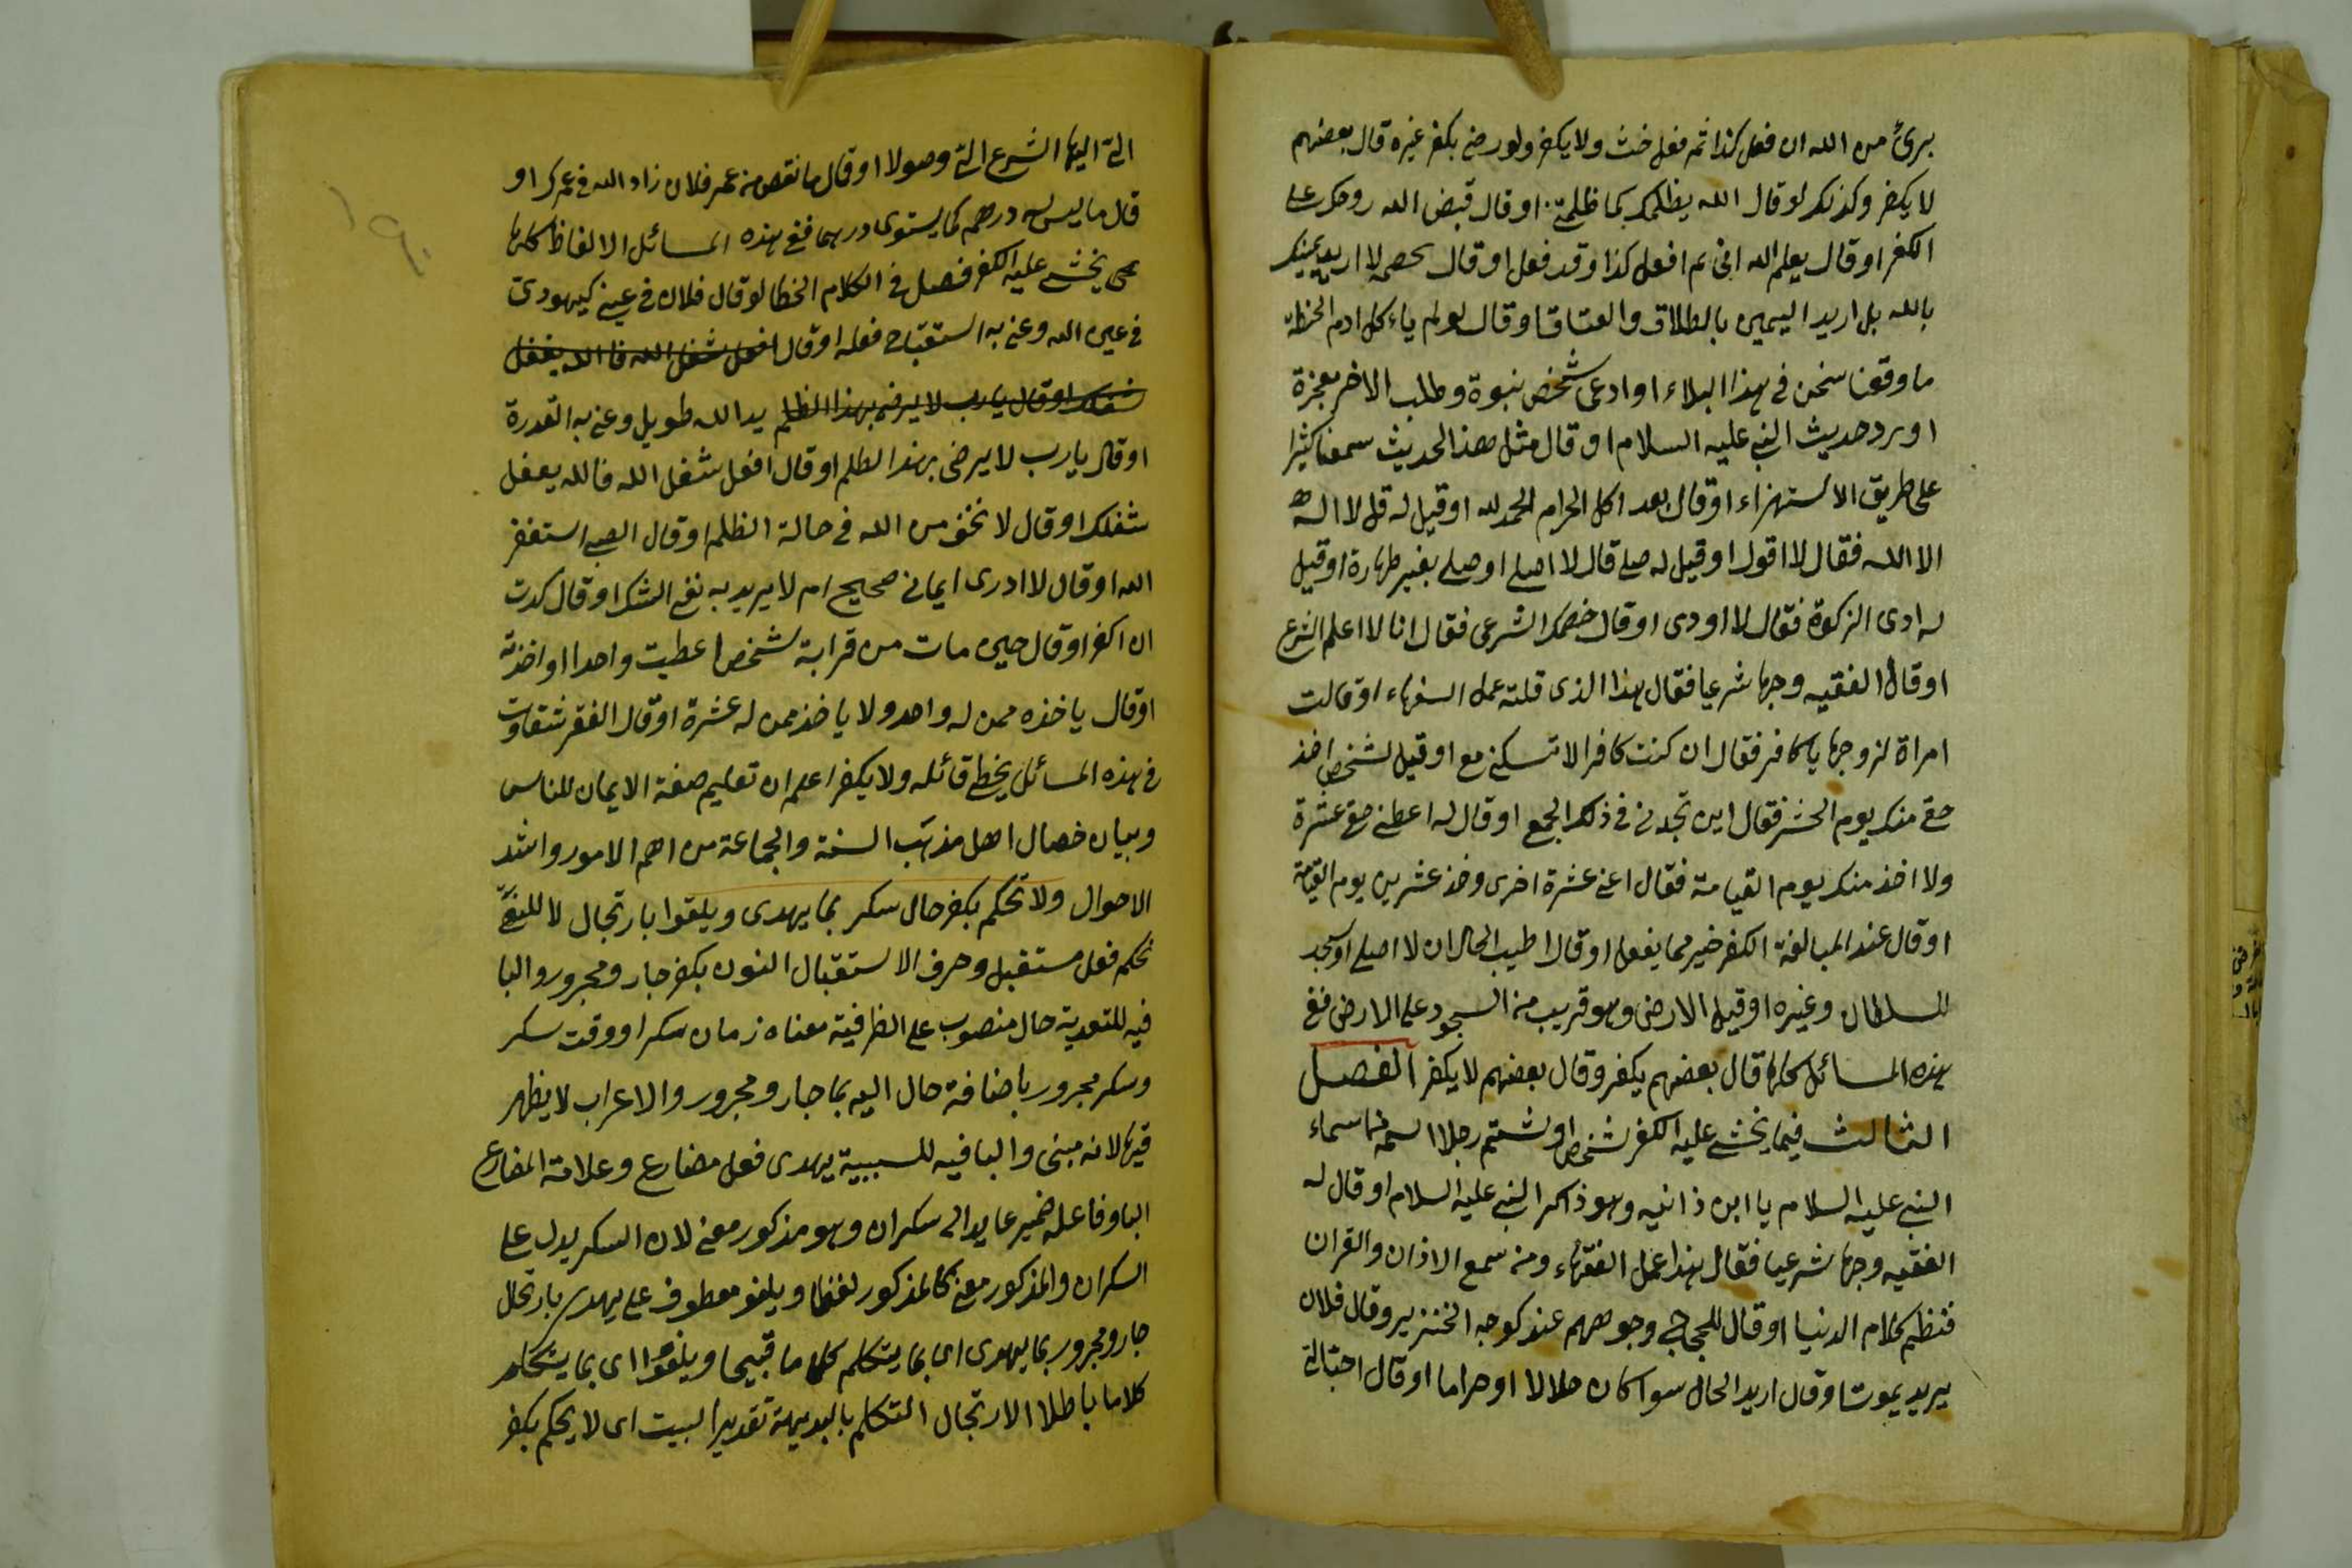 برئ من الله ان فعل كذا ثم فعل حنث ولا يكفر ولو رضى بكفر غيره قال بعضهم
لا يكفر وكذلك لو قال الله يظلمك كما ظلمتنى او قال قبض الله روحك على
الكفر او قال يعلم الله انى لم افعل كذا وقد فعل او قال خصمه لا اريد يمينك
بالله بل اريد اليمين بالطلاق والعتاق او قال لو لم ياءكل ادم الحنطة
ما وقعنا نحن فى هذا البلاء او ادعى شخص بنبوة وطلب الاخر معجزة
او رد حديث النبى عليه السلام او قال مثل هذا الحديث سمعنا كثيرا
على طريق الاستهزاء او قال بعد اكل الحرام الحمد لله او قيل له قل لا اله
الا الله فقال لا اقول او قيل له صل قال لا اصلى او صلى بغير طهارة او قيل
له ادى الزكوة فقال لا اودى او قال خصمك الشرعى فقال انا لا اعلم الشرع
او قال الفقيه وجها شرعيا فقال هذا الذى قلته عمل السفهاء او قالت
امراة لزوجها يا كافر فقال ان كنت كافرا لا تسكنى مع او قيل لشخص اخذ
حقى منك يوم الحشر فقال اين تجدنى فى ذلك الجمع او قال له اعطنى حقى عشرة
ولا اخذ منك يوم القيامة فقال اعنى عشرة اخرى وخذ عشرين يوم القيامة
او قال عند المبالغة الكفر خير مما يفعل او قال اطيب الحال ان لا اصلى او سجد
للسلطان وغيره او قبل الارض وهو قريب من السجود على الارض ففى
هذه المسائل كلها قال بعضهم يكفر وقال بعضهم لا يكفر الفصل
الثالث فيما يخشى عليه الكفر شخص او شتم رجلا اسمه من اسماء
النبى عليه السلام يا ابن زانيه وهو ذاكر النبى عليه السلام او قال له
الفقيه وجها شرعيا فقال هذا عمل الفقهاء ومن سمع الاذان والقران
فنظم كلام الدنيا او قال للحجاجى وجوههم عندى كوجه الخنزير وقال فلان
يريد يموت او قال اريد الحال سوا كان حلالا او حراما او قال احتيالى
الى اليها الشرع الى وصولا او قال ما نقص من عمر فلان زاد الله فى عمرك او
قال ما ليس له درهم كما يستوى درهما ففى هذه المسائل الالفاظ كلها
يخشى عليه الكفر فصل فى الكلام الخطا لو قال فلان فى عينى كيهودى
فى عين الله وعنى به استقباح فعله او قال افعل شغل الله فالله يفعل
شغلك او قال يا رب لا يرضى بهذا الظلم يد الله طويل وعنى به القدرة
او قال يا رب لا يرضى بهذا الظلم او قال افعل شغل الله فالله يفعل
شغلك او قال لا تخف من الله فى حالة الظلم او قال الصبى استغفر
الله او قال لا ادرى ايمانى صحيح ام لا يريد به نفى الشك او قال كدت
ان اكفر او قال حين مات من قرابة شخص اعطيت واحدا او اخذته
او قال ياخذه ممن له واحد ولا ياخذ ممن له عشرة او قال الفقر شقاوت
فى هذه المسائل يخطى قائله ولا يكفر اعلم ان تعليم صفة الايمان للناس
وبيان خصال اهل مذهب السنة والجماعة من اهم الامور واشد
الاحوال ولا تحكم بكفر حال سكر بما يهدى ويلغوا بارتجال لا للنفى
تحكم فعل مستقبل وحرف الاستقبال النون بكفر جار ومجرور والبا
فيه للتعدية حال منصوب على الظرفية معناه زمان سكر او وقت سكر
وسكر مجرور باضافة حال اليه بما جار ومجرور والاعراب لا يظهر
فيها لانه مبنى والبا فيه للسببية يهدى فعل مضارع وعلامة المضارع
اليا وفاعله ضمير عايد الى سكران وهو مذكور معنى لان السكر يدل على
السكران والمذكور معنى كالمذكور لفظا ويلغو معطوف على يهدى بارتجال
جار ومجرور بما يهدى اى بما يتكلم كلاما قبيحا ويلغوا اى بما يتكلم
كلاما باطلا الارتجال التكلم بالبديهة تقدير البيت اى لا يحكم بكفر